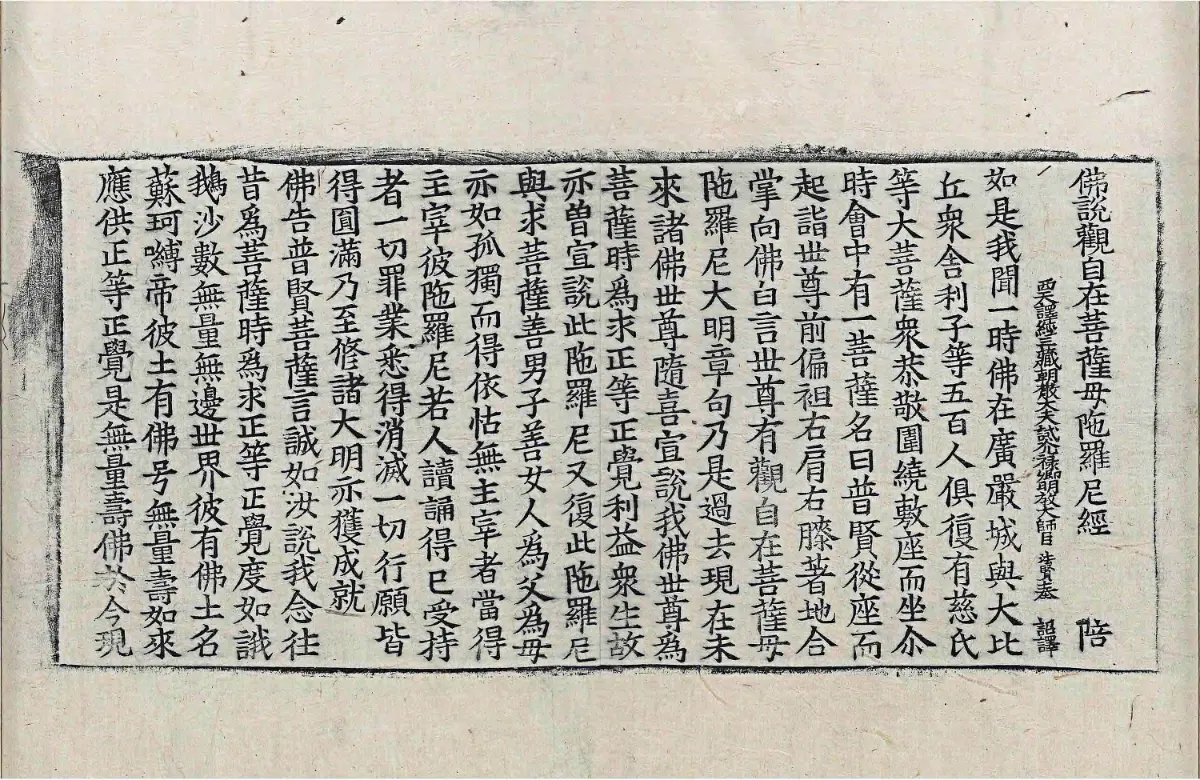 佛說觀自在菩薩母陁羅尼經 陪
西天譯經三藏朝散大夫試光禄卿明教大師臣法賢奉 詔譯
如是我聞一時佛在廣嚴城與大比
丘衆舍利子等五百人俱復有慈氏
等大菩薩衆恭敬圍繞敷座而坐尒
時會中有一菩薩名曰普賢從座而
起詣世尊前偏袒右肩右膝著地合
掌向佛白言世尊有觀自在菩薩母
陁羅尼大明章句乃是過去現在未
來諸佛世尊隨喜宣說我佛世尊爲
菩薩時爲求正等正覺利益衆生故
亦曽宣說此陁羅尼又復此陁羅尼
與求菩薩善男子善女人爲父爲母
亦如孤獨而得依怙無主宰者當得
主宰彼陁羅尼若人讀誦得已受持
者一切罪業悉得消滅一切行願皆
得圓滿乃至修諸大明亦獲成就
佛告普賢菩薩言誠如汝說我念往
昔爲菩薩時爲求正等正覺度如誐
鵝沙數無量無邊世界彼有佛土名
蘇珂嚩帝彼土有佛号無量壽如來
應供正等正覺是無量壽佛於今現